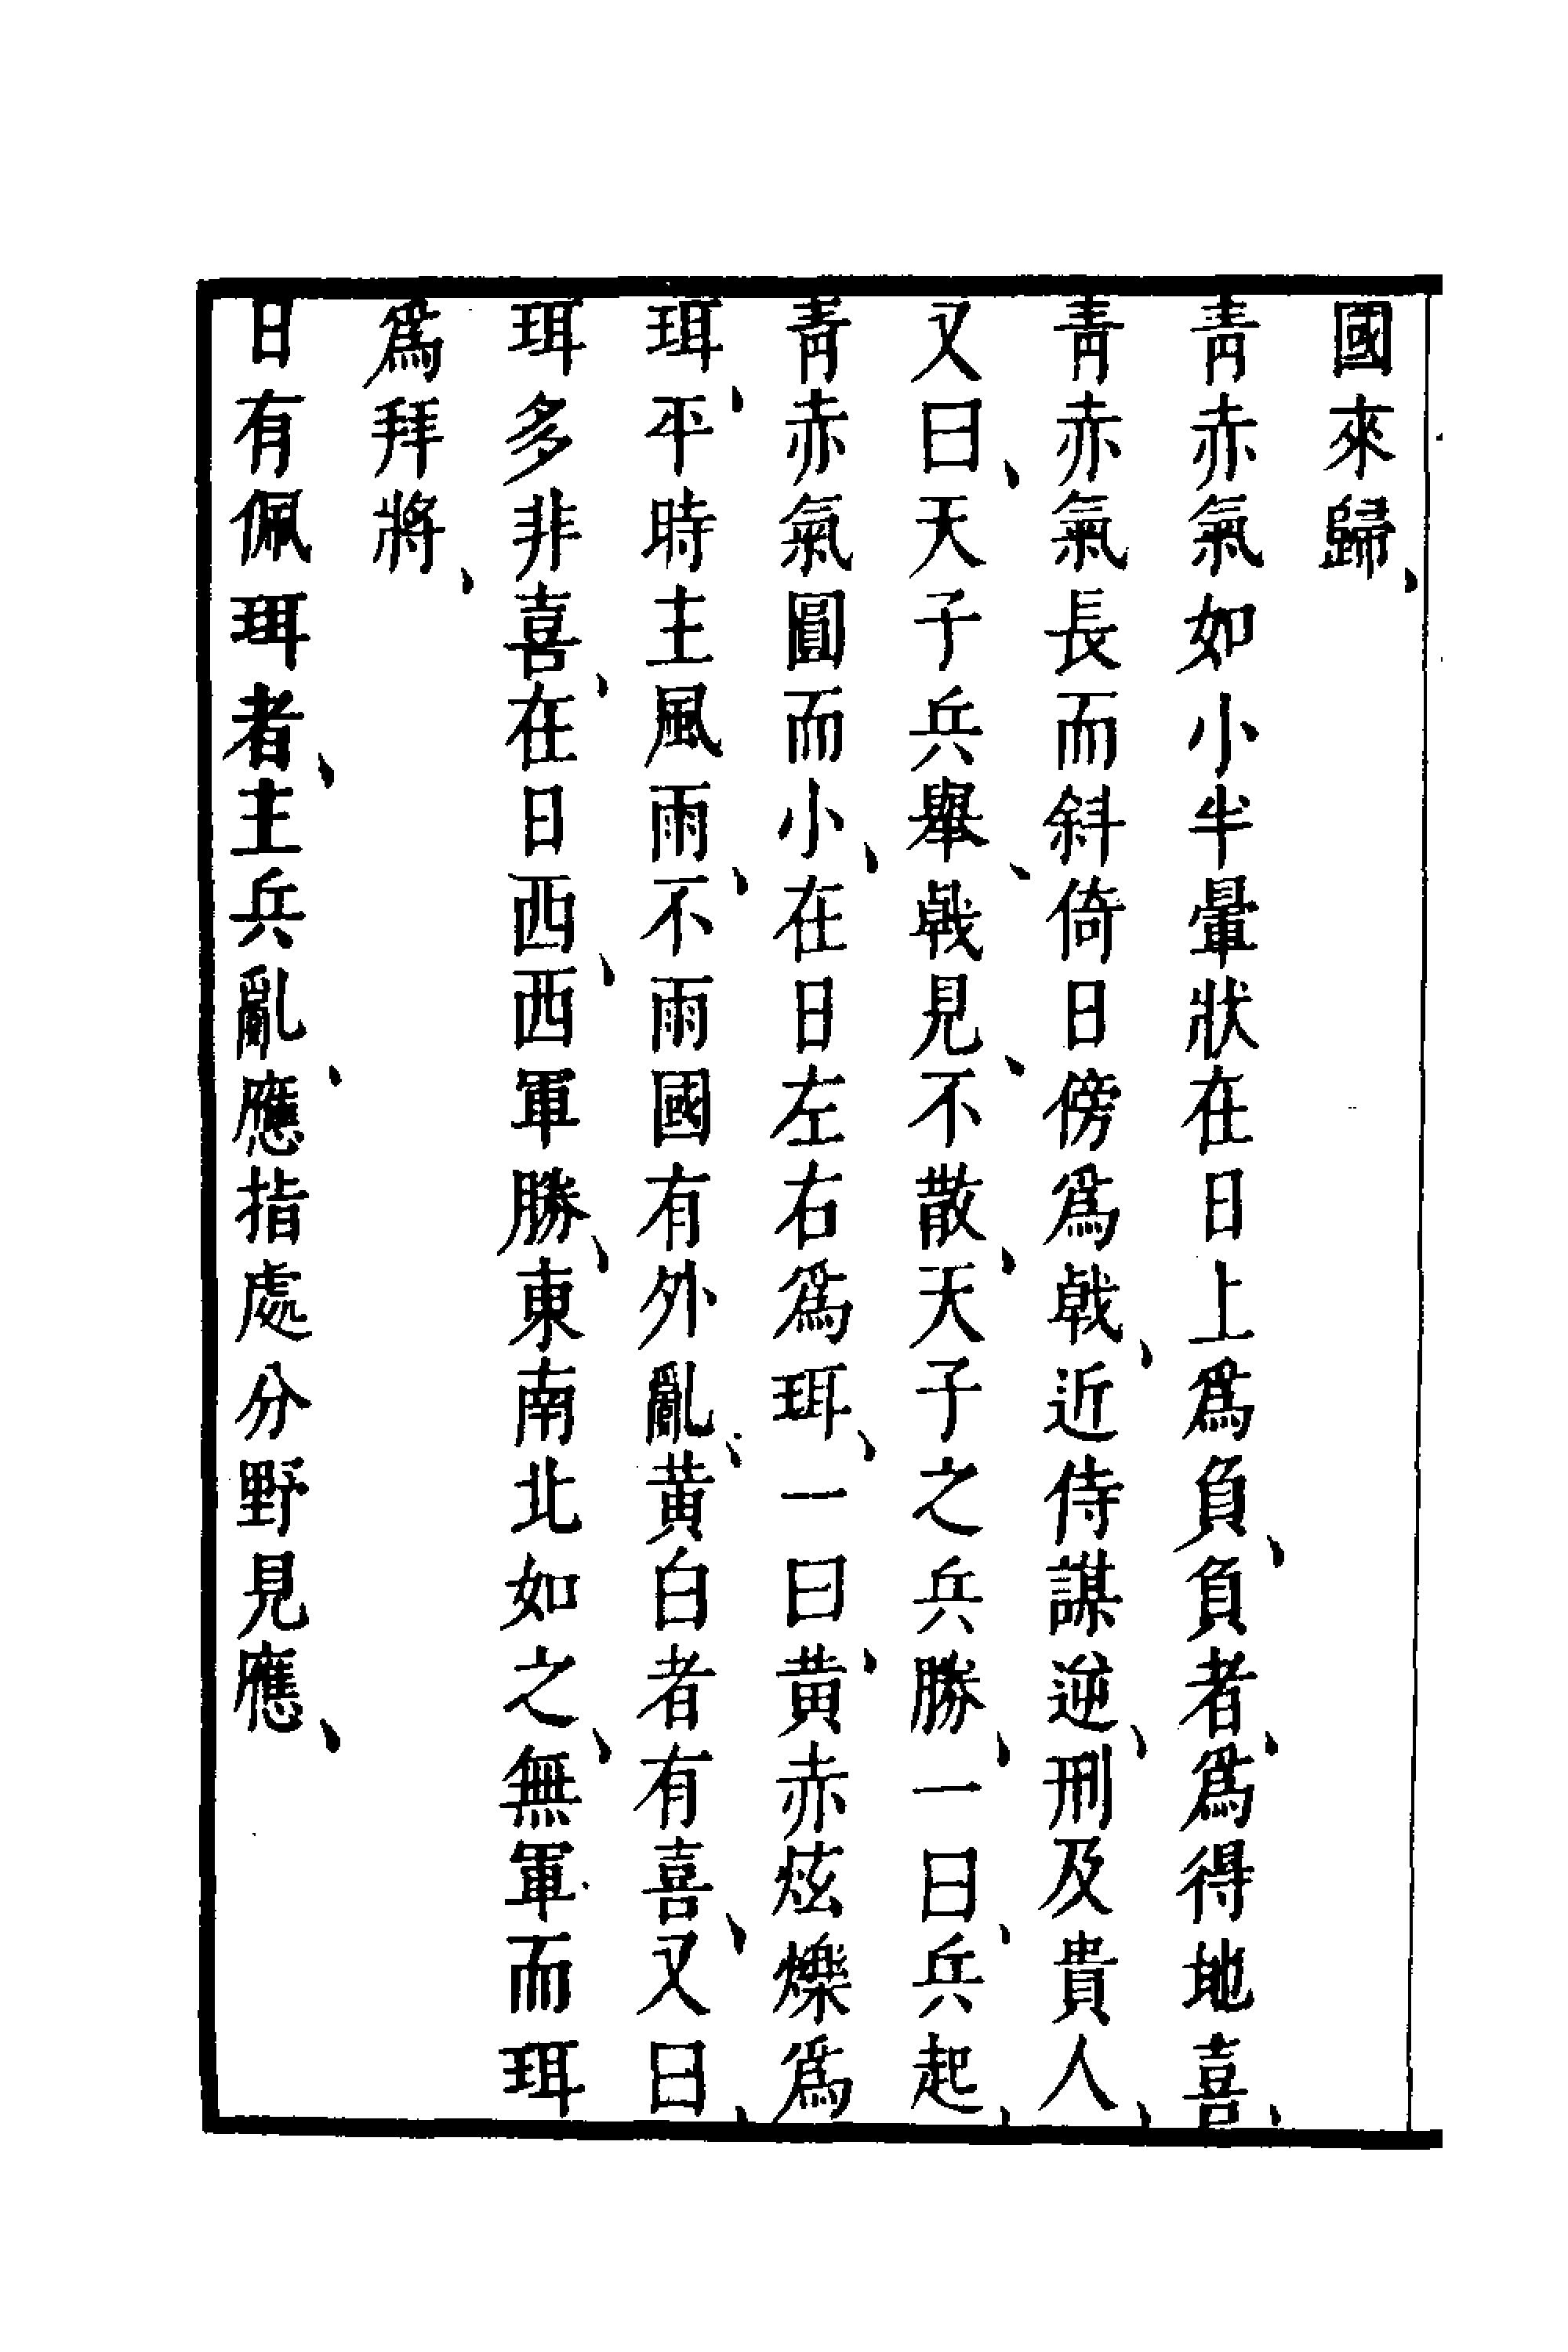 國來歸、
青赤氣如小半暈狀在日上爲負、負者、爲得地喜、
青赤氣長而斜倚日傍爲戟、近侍謀逆、刑及貴人、
又曰、天子兵舉、戟見、不散、天子之兵勝、一曰、兵起、
青赤氣圓而小、在日左右爲珥、一曰、黄赤炫爍爲
珥、平時主風雨、不雨國有外亂、黄白者有喜、又曰、
珥多非喜、在日西、西軍勝、東南北如之、無軍而珥
爲拜將、
日有佩珥者、主兵亂、應指處分野見應、